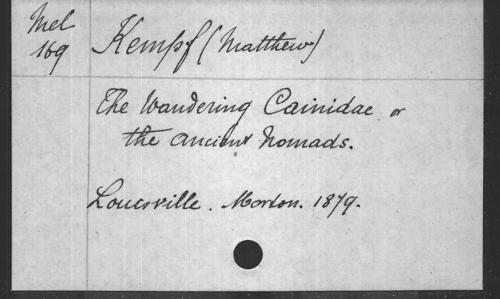 Mel
169
Kempf (Matthew)
The Wandering Cainidae or
the Ancient Nomads.
Louisville. Morton. 1879.